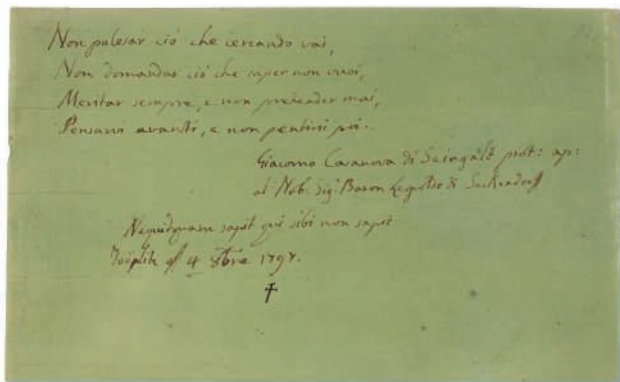 Non palesar ciò che cercando vai,
Non domandar ciò che saper non vuoi,
Meritar sempre, e non pretender mai,
Pensarvi avanti, e non pentirsi poi.
Giacomo Casanova di Seingalt prot: ap:
al Nob: Sig. Baron Leopoldo di Seckendorff
Nequidquam sapit qui sibi non sapit
Töplitz 4 8bre 1797.